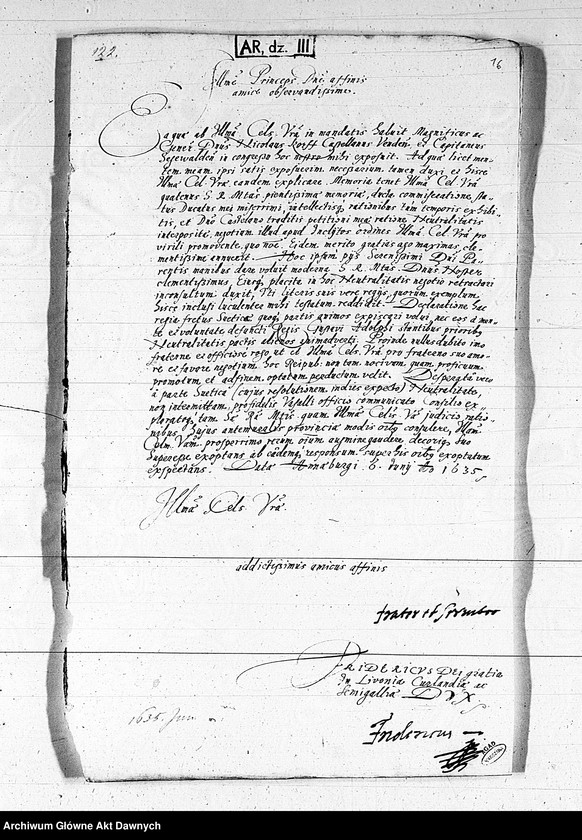 122.
AR, dz. III
16
Illmē Princeps Dnē affinis
amice observandissime.
Ea quæ ab Illmā Cels. Vrā in mandatis habuit Magnificus ac
Gener. Dnus Nicolaus Korff Castellanus Venden. et Capitaneus
in congressu hoc nostro mihi exposuit. Ad quæ licet men-
tem meam ipsi satis exposuerim, necessarium tamen duxi, et hisce
Illmæ Cel. Vræ eandem explicare. Memoria tenet Illmā Cel. Vrā
quatenus S. R. Mtas. pientissimæ memoriæ, docta commiseratione, sta-
tus Ducatus mei miserrimi, intellectisq, rationibus tam tempori exhibi-
tis, et Dno Castellano traditis petitioni meæ ratione Neutralitatis
interpositæ, negotium illud apud Inclytos ordines Illmā Cel. Vrā pro
virili promovente, quo noīe. Eidem merito gratias ago maximas, cle-
mentissime annuerit. Hoc ipsum pijs Serenissimi Dni Pa-
rentis manibus datū voluit moderna S. R. Mtas. Dnus Noster
clementissimus, Eiusq, placita in hoc Neutralitatis negotio retractari
inconsultum duxit, uti literis suis vere regijs, quorum exemplum
hisce inclusi luculenter mihi testatum reddidit. Declaratione hac
regia fretus Sueticæ quoq, partis animos expiscari volui, nec eos à men-
te et voluntate defuncti Regis Gustavi Adolphi stantibus prioribus
Neutralitatis pactis alienos animadverti. Proinde nullus dubito imo
fraterne et officiose rogo ut et Illmā Cels. Vrā pro fraterno suo amo-
re et favore negotium hoc Reipub: non tam nocivum quam proficuum
promotum, et ad finem optatum perductum velit. Desperata vero
à parte Suetica (cuius resolutionem indies expecto) Neutralitate,
non intermittam, pro fidelis Vasalli officio communicato Consilio ex-
plorateq, tam Sæ Ræ Mtis. quam Illmæ Celis. Væ judicio,
nibus huius antemuralis provinciæ modis oībus consulere, Illmā
Celm. Vam. prosperrimo rerum oīum augmine gaudere decoriq, suo
superesse exoptans ab eademq, responsum super his oībus exoptatum
expectans. Data Annaburgi 6. Junij Ao 1635.
Illmæ Cels. Vræ
addictissimus amicus affinis
frater et servitor
FRIDERICVS DEI gratia
In Livonia Curlandiæ ac
Semigalliæ DVX.
Fridericus
1635. Jun.
AGAD
Archiwum Główne Akt Dawnych